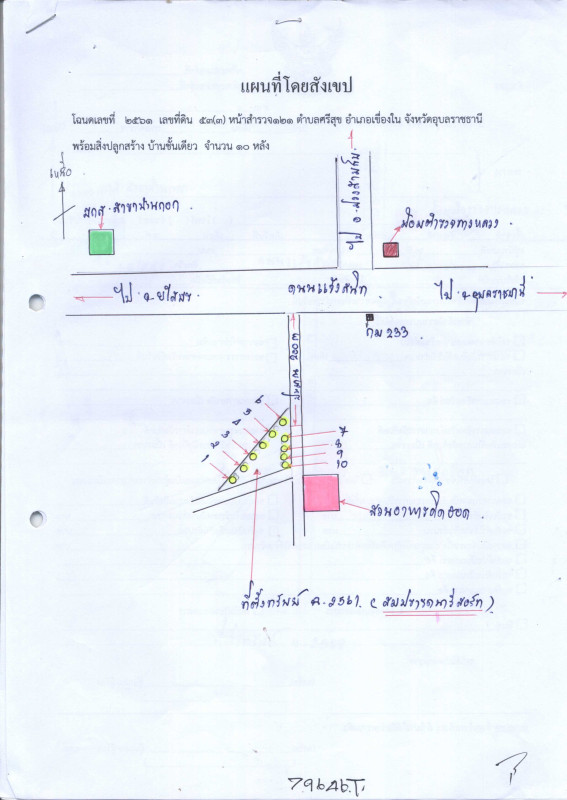 แผนที่โดยสังเขป
โฉนดเลขที่ ๒๕๖๑ เลขที่ดิน ๕๓(๓) หน้าสำรวจ๑๒๑ ตำบลศรีสุข อำเภอเขื่องใน จังหวัดอุบลราชธานี
พร้อมสิ่งปลูกสร้าง บ้านชั้นเดียว จำนวน ๑๐ หลัง
เหนือ
ป้อมตำรวจทางหลวง
ไป จ.ยโสธร
ถนนแจ้งสนิท
ไป จ.อุบลราชธานี
กม 233
ประมาณ 200 ม
1 2 3 4 5 6
7
8
9
10
สวนอาหารติดยอด
ที่ตั้งทรัพย์ ฉ.2561